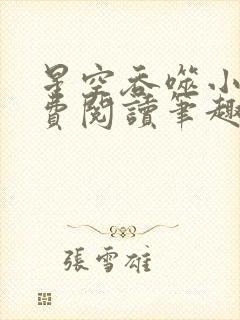 星空吞噬小
費閱讀筆趣
張雪雄